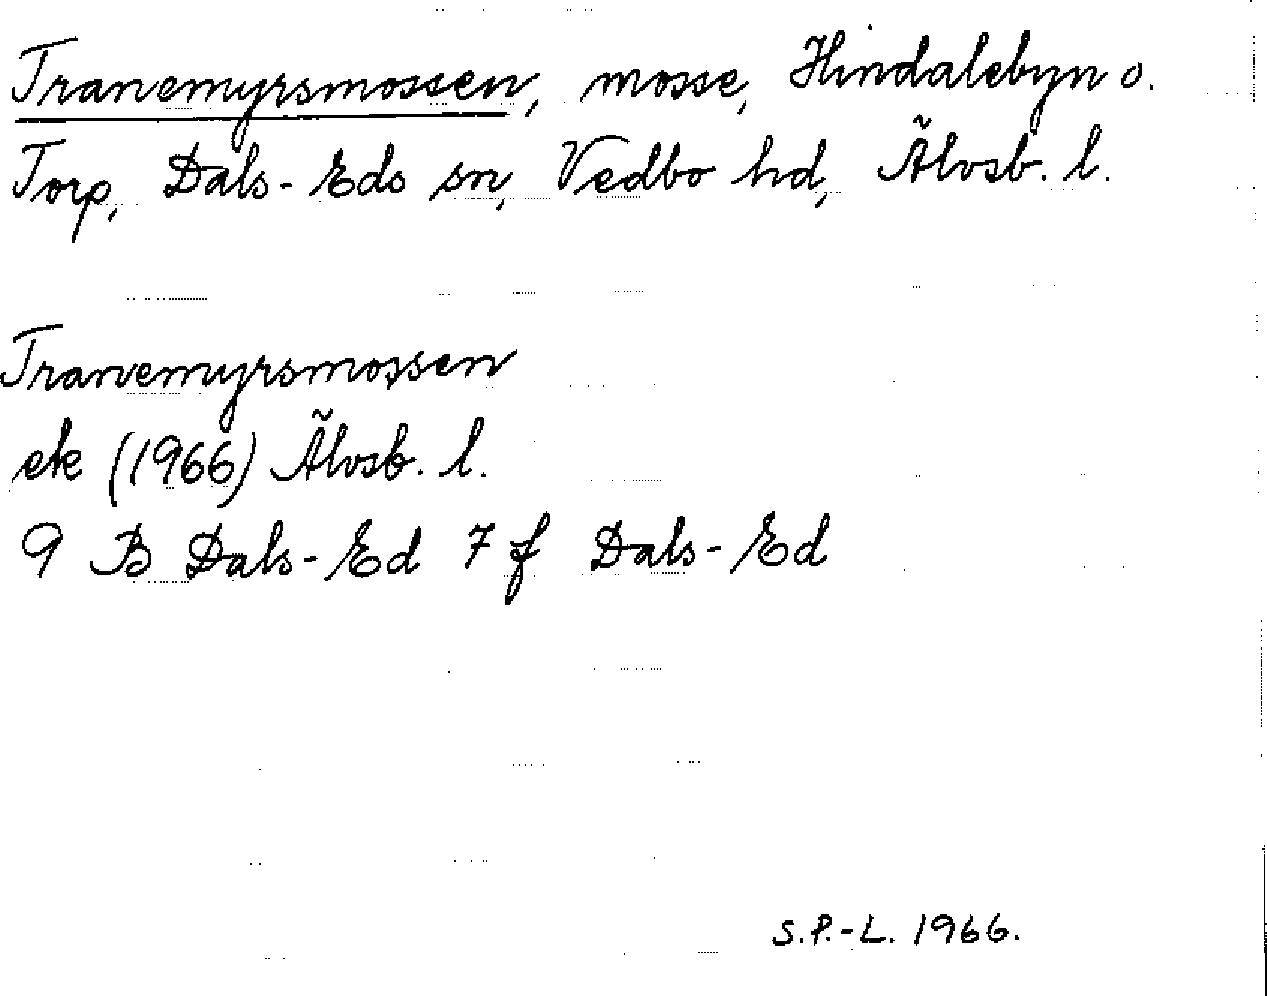 Tranemyrsmossen, mosse, Hindalebyn o.
Torp, Dals-Eds sn, Vedbo hd, Älvsb. l.
Tranemyrsmossen
ek (1966) Älvsb. l.
9 B Dals-Ed 7 f Dals-Ed
S.P.-L. 1966.